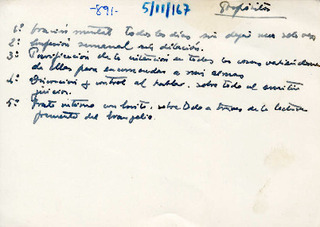 -891-
5/11/167
Propósitos
1º: oración mental todos los días sin dejar una sola vez
2º: Confesión semanal sin dilación.
3º Purificación de la intención en todas las cosas valiéndome
de ellas para encomendar a mis almas
4º: Discreción y control al hablar. sobre todo al emitir
juicios.
5º: Trato íntimo con Cristo, sobre todo a través de la lectura
frecuente del Evangelio.